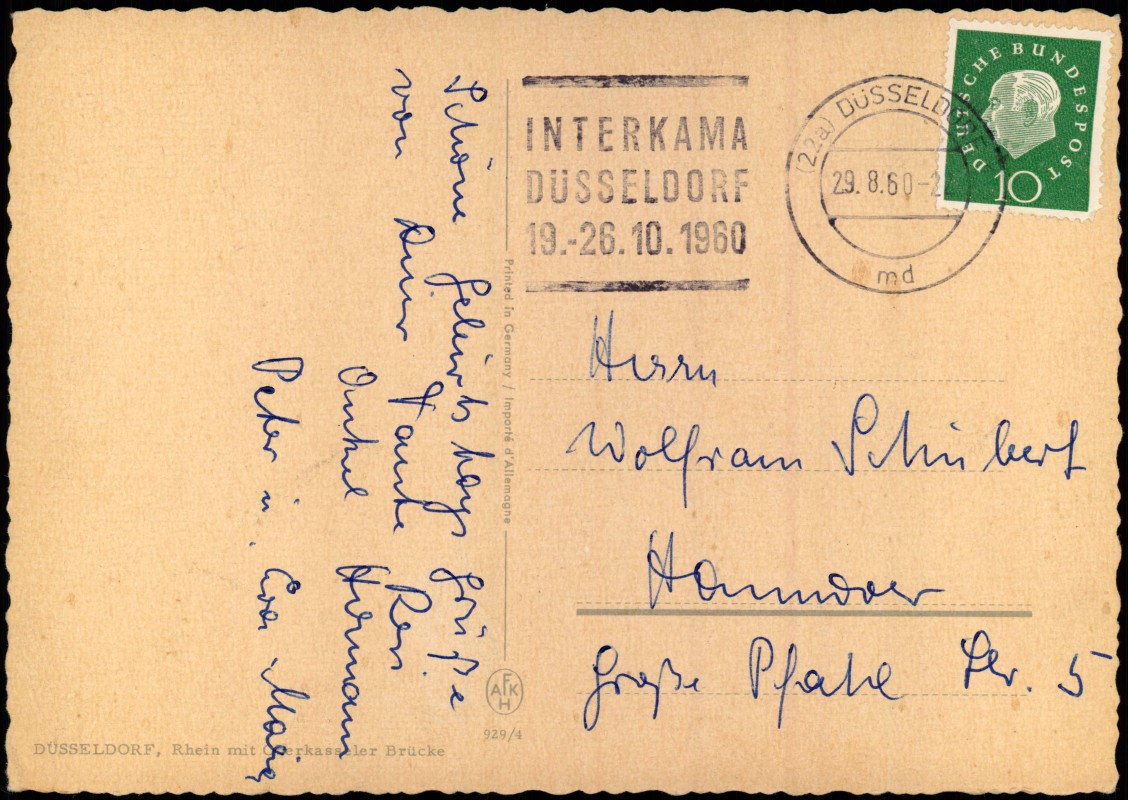 Schöne Geburtstags Grüße
von Deiner Tante Resi
Onkel Hermann
Peter u. Eva-Maria
DÜSSELDORF, Rhein mit Oberkasseler Brücke
Printed in Germany / Importé d'Allemagne
AFKH
929/4
INTERKAMA
DÜSSELDORF
19.-26.10.1960
(22a) DÜSSELDORF
29.8.60-2
md
DEUTSCHE BUNDESPOST
10
Herrn
Wolfram Schubert
Hannover
Große Pfahl Str. 5